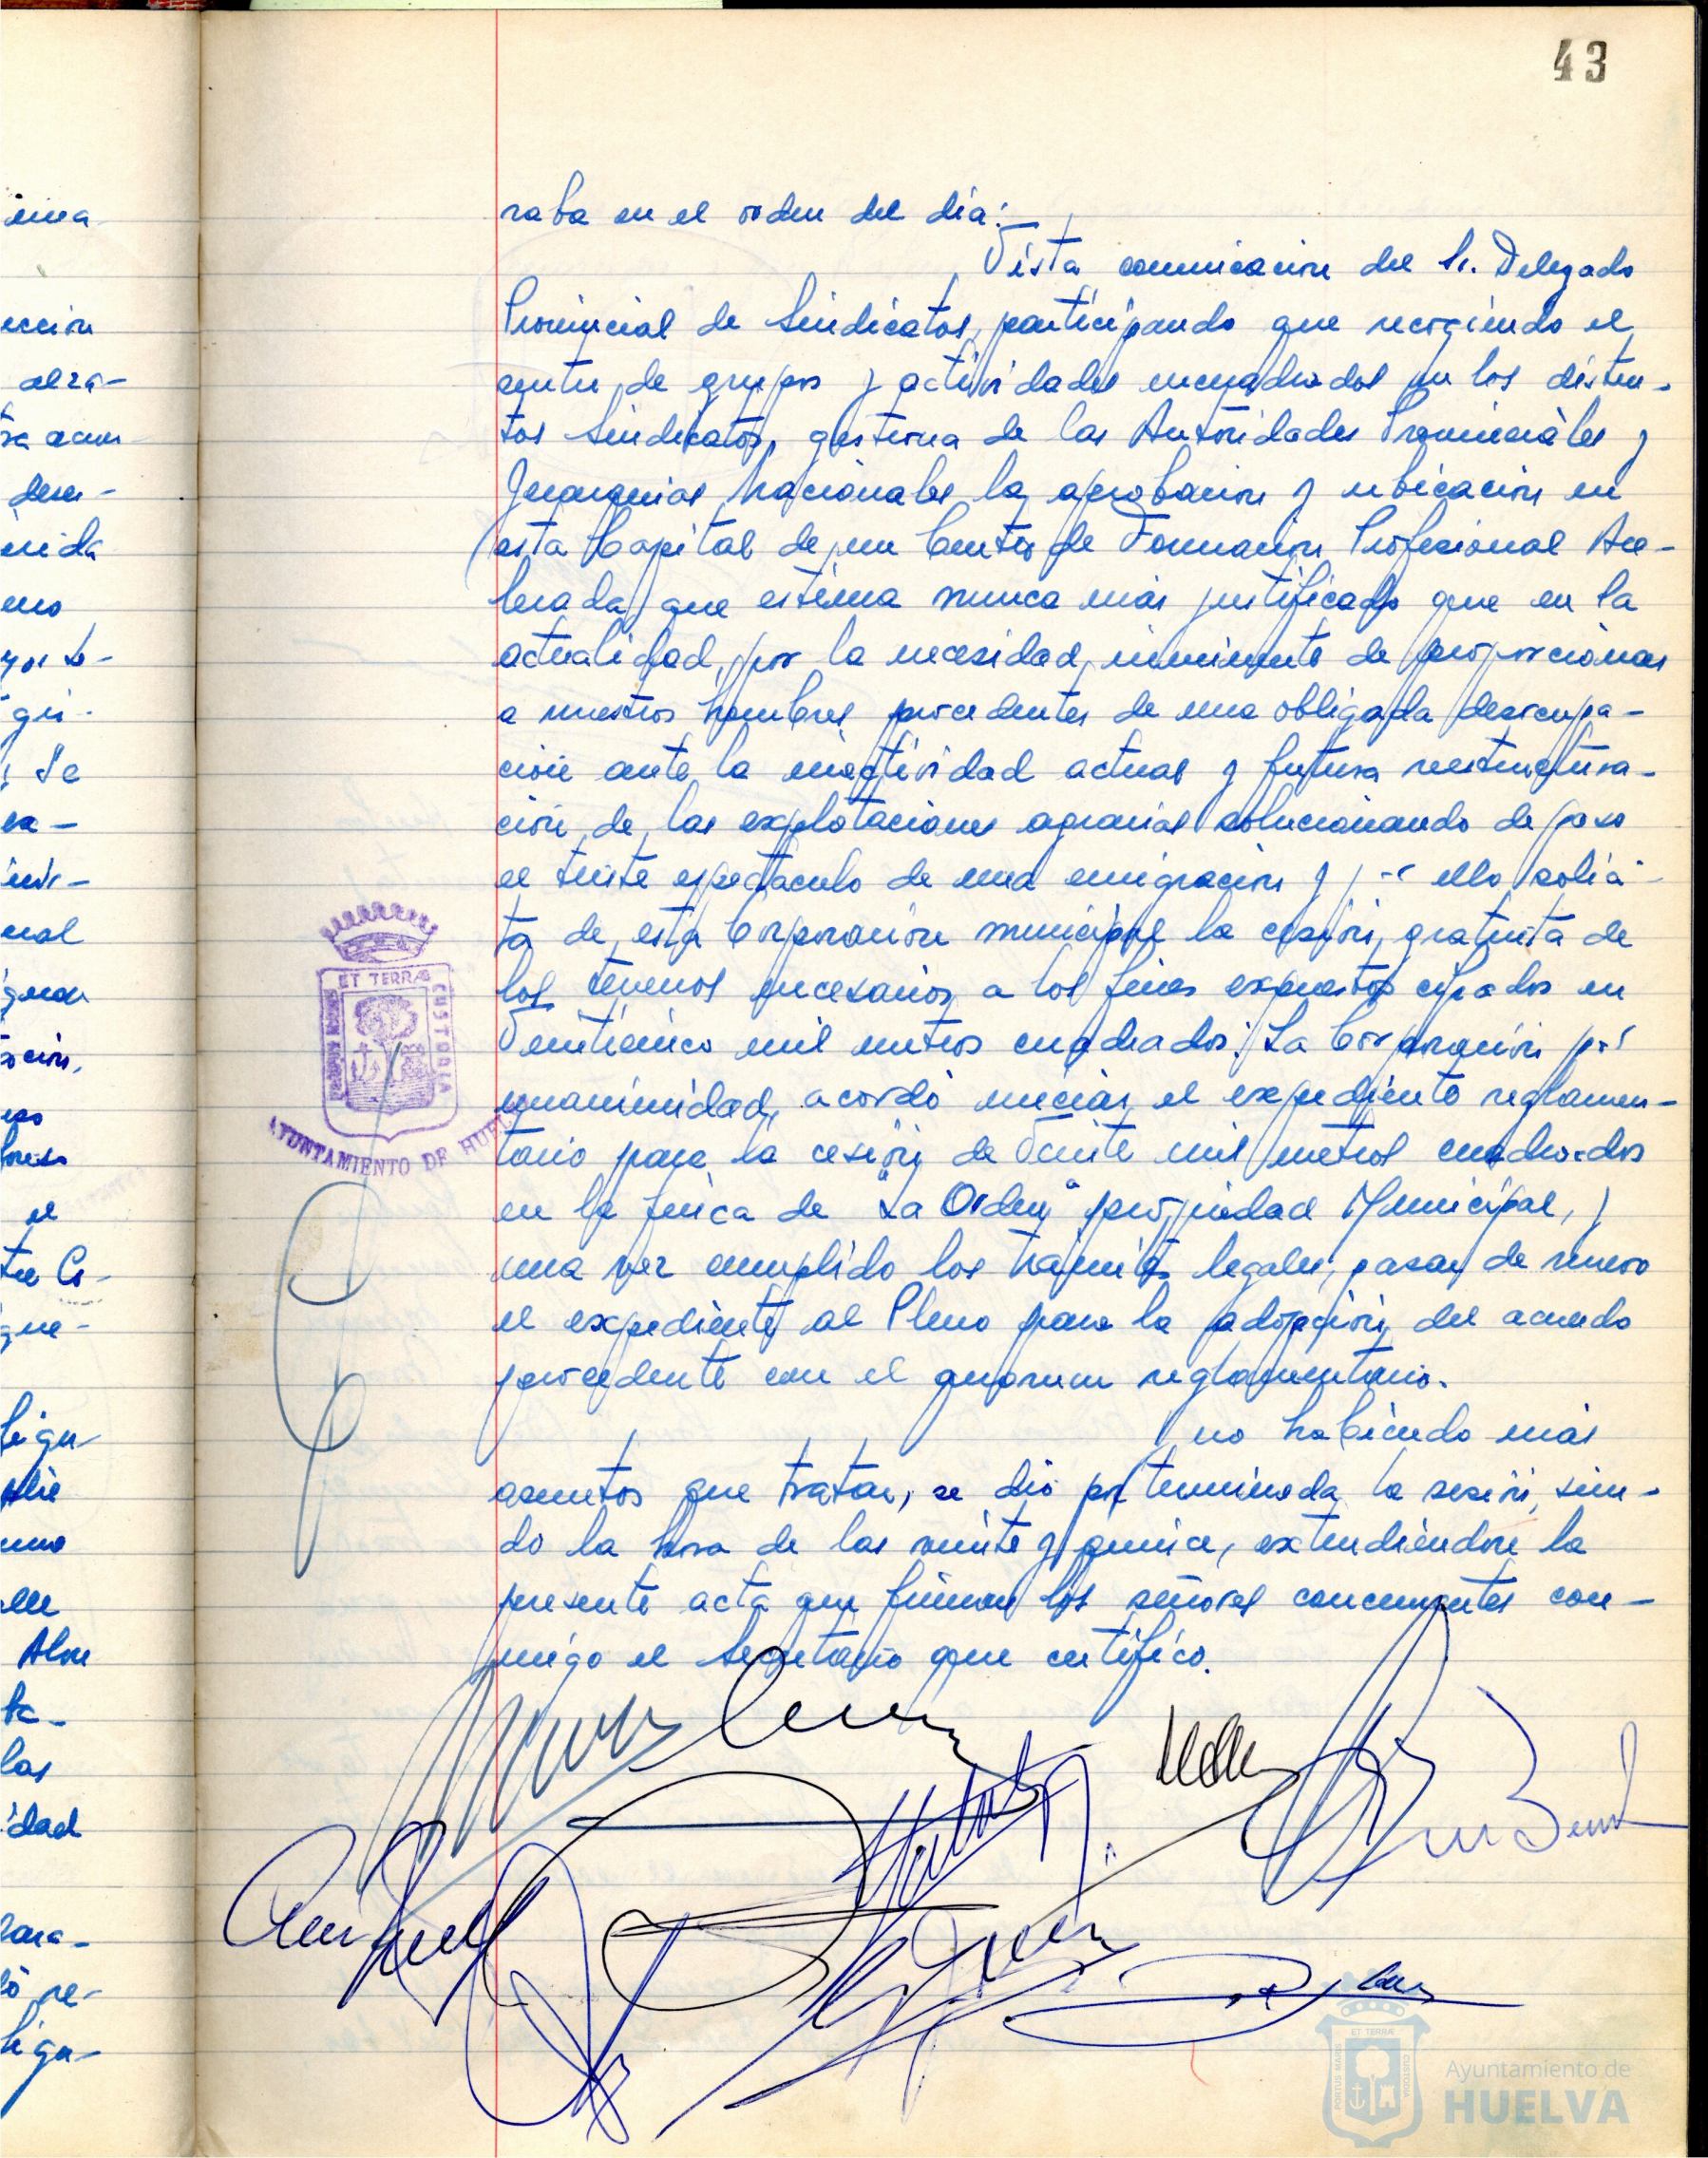 43
raba en el orden del día:
Vista comunicacion del Sr. Delegado
Provincial de Sindicatos, participando que recogiendo el
sentir de grupos y actividades encuadrados en los distin-
tos Sindicatos, gestiona de las Autoridades Provinciales y
Jerarquias Nacionales la aprobacion y ubicacion en
esta Capital de un Centro de Formacion Profesional Ace-
lerada que estima nunca más justificado que en la
actualidad, por la necesidad inminente de proporcionar
a nuestros hombres procedentes de una obligada desocupa-
ción ante la inactividad actual y futura restructura-
ción de las explotaciones agrarias solucionando de paso
el triste espectaculo de una emigracion y por ello solici-
ta de esta Corporacion municipal la cesión gratuita de
los terrenos necesarios a los fines expuestos cifrados en
Veinticinco mil metros cuadrados. La Corporación por
unanimidad, acordó iniciar el expediente reglamen-
tario para la cesión de Veinte mil metros cuadrados
en la finca de "La Orden" propiedad Municipal, y
una vez cumplido los tramites legales, pasar de nuevo
el expediente al Pleno para la adopción del acuerdo
procedente con el quorum reglamentario.
Y no habiendo más
asuntos que tratar, se dió por terminada la sesión, sien-
do la hora de las veinte y quince, extendiéndose la
presente acta que firman los señores concurrentes con-
migo el Secretario que certifico.
ET TERRÆ
CUSTODIA
AYUNTAMIENTO DE HUELVA
Ayuntamiento de
HUELVA